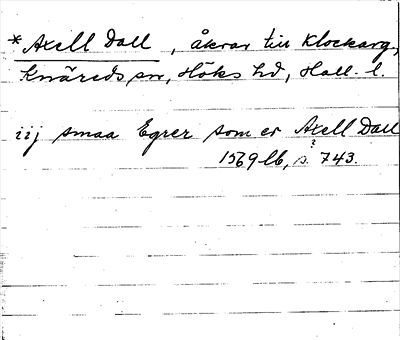 * Axell Dall, åkrar till Klockareg,
Knäreds sn, Höks hd, Hall. l.
iij smaa Egrer som er Axell Dall
1569 lb, s. 743.